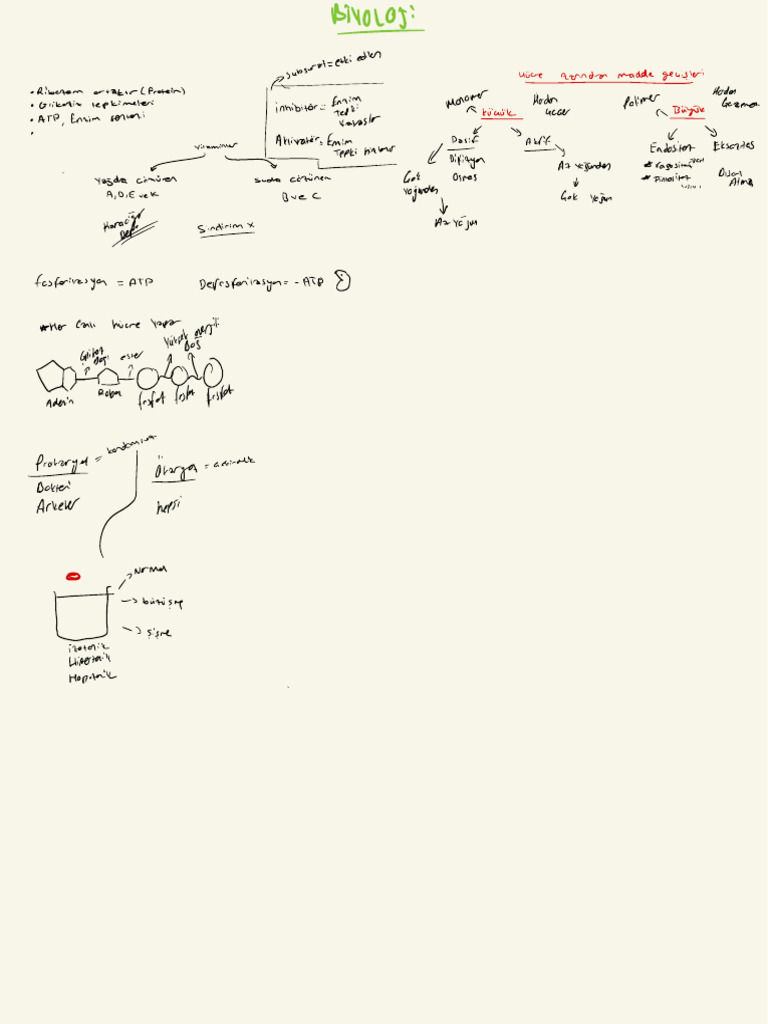 Biyoloji
• Ribozom ortaktır (Protein)
• Glikoliz tepkimeleri
• ATP, Enzim sentezi
•
Subsurat = etki edilen
inhibitör = Enzim
Tepki
Yavaşlar
Aktivatör = Enzim
Tepki
Vitaminler
Yağda çözünen
A, D, E ve K
Karaciğer
Suda çözünen
B ve C
Sindirim x
Hücre zarından madde geçişleri
Monomer
küçük
Pasif
Difüzyon
Osmos
Çok
Yoğundan
Az Yoğun
Aktif
Az Yoğundan
Çok Yoğun
Polimer
Büyük
Endositoz
Eksositoz
Dışarı
Fosforilasyon = ATP
Defosforilasyon = - ATP
*Her canlı hücre yapar
Glikozit
bağı
ester
Yüksek enerjili
Bağ
Adenin
Riboz
fosfat
fosfat
fosfat
Prokaryot =
Bakteri
Arkeler
Ökaryot =
hepsi
Normal
büzüşme
şişme
izotonik
Hipertonik
Hipotonik